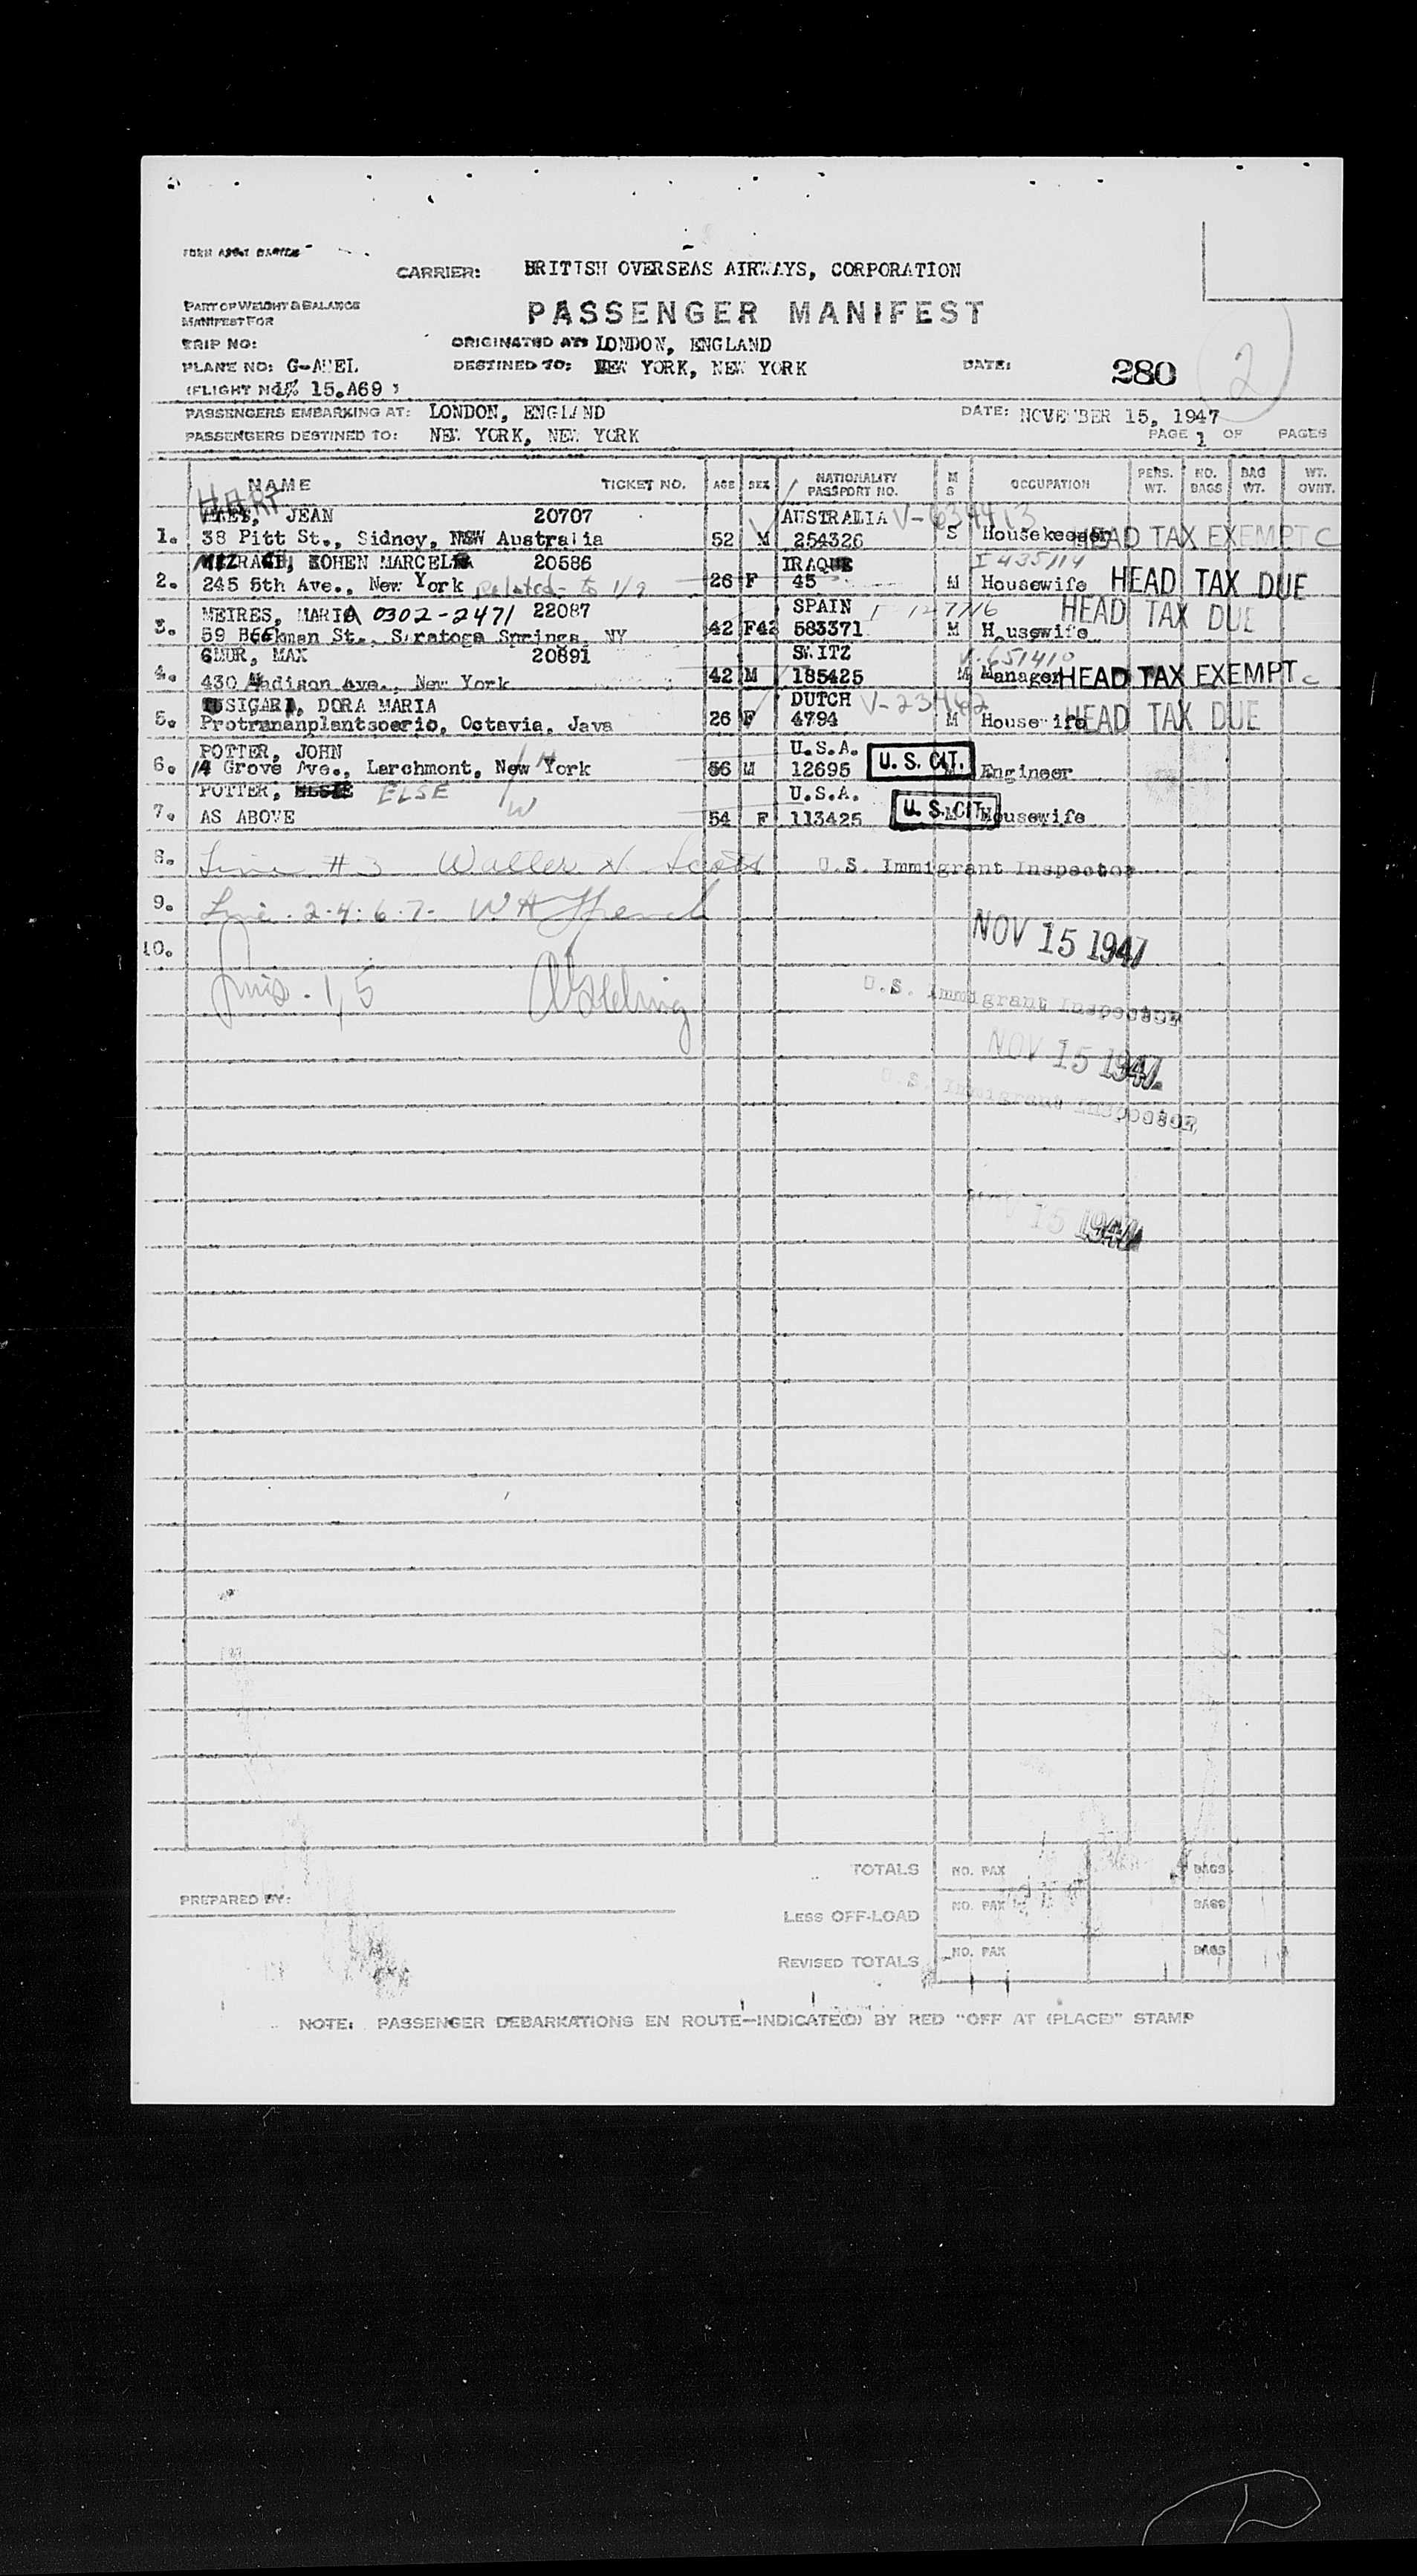 CARRIER: BRITISH OVERSEAS AIRWAYS, CORPORATION
PART OF WEIGHT & BALANCE
MANIFEST FOR
PASSENGER MANIFEST
TRIP NO: ORIGINATED AT: LONDON, ENGLAND
PLANE NO: DESTINED TO: NEW YORK, NEW YORK DATE: 280 2
(FLIGHT NO. 15.A69)
PASSENGERS EMBARKING AT: LONDON, ENGLAND DATE: NOVEMBER 15, 1947
PASSENGERS DESTINED TO: NEW YORK, NEW YORK PAGE 1 OF PAGES
NAME TICKET NO. AGE SEX NATIONALITY PASSPORT NO. M S OCCUPATION PERS. WT. NO. BAGS BAG WT. WT. OVHT.
HART
JEAN 20707 AUSTRALIA
1. 38 Pitt St., Sidney, NSW Australia 52 M 254326 S Housekeeper HEAD TAX EXEMPT C
KOHEN 20586 IRAQUE I 435114
2. 245 5th Ave., New York Related to 1/9 26 F 45 M Housewife HEAD TAX DUE
MEIRES, MARIA 0302-2471 22087 SPAIN HEAD TAX DUE
3. 59 Beekman St., Saratoga Springs, NY 42 F42 583371 M Housewife
GMUR, MAX 20891 SWITZ V-651410
4. 430 Madison Ave., New York 42 M 185425 M Manager HEAD TAX EXEMPT C
DORA MARIA DUTCH V-23462
5. Octavia, Java 26 F 4794 M Housewife HEAD TAX DUE
POTTER, JOHN U.S.A.
6. 14 Grove Ave., Larchmont, New York H 56 M 12695 U.S. CIT. Engineer
POTTER, ELSE W U.S.A.
7. AS ABOVE 54 F 113425 U.S. CIT. M Housewife
8. Line #3 Walter H. Scott U.S. Immigrant Inspector
9. Line 2-4-6-7- W H French
NOV 15 1947
10.
Lines 1, 5
U.S. Immigrant Inspector
NOV 15 1947
U.S. Immigrant Inspector
NOV 15 1947
TOTALS NO. PAX BAGS
PREPARED BY: LESS OFF-LOAD NO. PAX BAGS
REVISED TOTALS NO. PAX BAGS
NOTE: PASSENGER DEBARKATIONS EN ROUTE—INDICATE(D) BY RED "OFF AT (PLACE)" STAMP